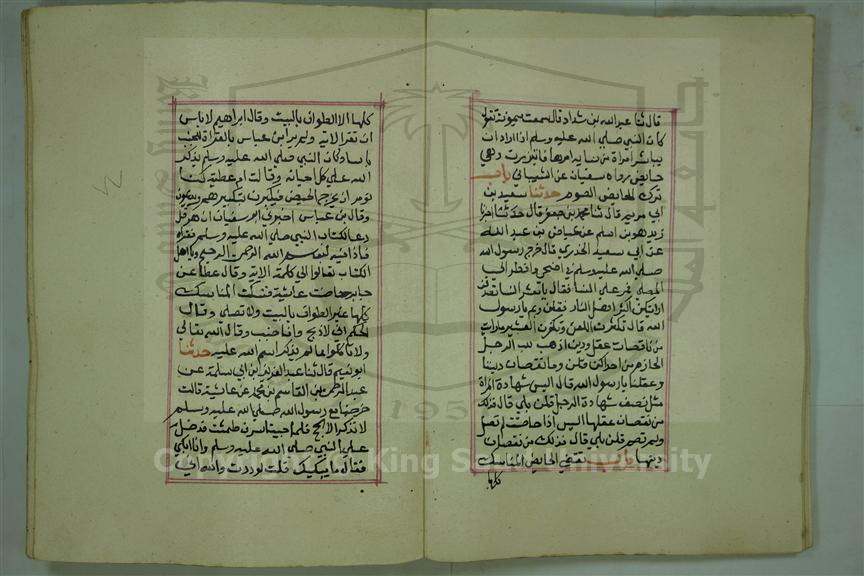 قال ثنا عبدالله بن شداد قال سمعت ميمونة تقول
كان النبي صلي الله عليه وسلم اذا اراد ان
يباشر امراة من نسايه امرها فاتزرت وهي
حايض رواه سفيان عن الشيباني باب
ترك الحايض الصوم حدثنا سعيد بن
ابي مريم قال ثنا محمد بن جعفر قال حدثنا اخبرنا
زيد هو بن اسلم عن عياض بن عبد الله
عن ابي سعيد الخدري قال خرج رسول الله
صلي الله عليه وسلم في اضحي او فطر الي
المصلي فمر علي النسا فقال يا معشر النسا تصدقن
فاني اريتكن اكثر اهل النار فقلن وبم يا رسول
الله قال تكثرن اللعن وتكفرن العشير ما رايت
من ناقصات عقل ودين اذهب للب الرجل
الحازم من احداكن قلن وما نقصان ديننا
وعقلنا يا رسول الله قال اليس شهادة المراة
مثل نصف شهادة الرجل قلن بلي قال فذلك
من نقصان عقلها اليس اذا حاضت لم تصل
ولم تصم قلن بلي قال فذلك من نقصان
دينها باب تقضي الحايض المناسك
كلها
كلها الا الطواف بالبيت وقال ابراهيم لا باس
ان تقرا الاية ولم ير ابن عباس بالقراة للجنب
باسا وكان النبي صلي الله عليه وسلم يذكر
الله علي كل احيانه وقالت ام عطية كنا
نومر ان يخرج الحيض فيكبرن بتكبيرهم ويدعون
وقال بن عباس اخبرني ابو سفيان ان هرقل
دعا بكتاب النبي صلي الله عليه وسلم فقراه
فاذا فيه بسم الله الرحمن الرحيم ويا اهل
الكتاب تعالوا الي كلمة الاية وقال عطا عن
جابر حاضت عايشة فنسكت المناسك
كلها غير الطواف بالبيت ولا تصلي وقال
الحكم اني لاذبح وانا جنب وقال الله تعالي
ولا تاكلوا مما لم يذكر اسم الله عليه حدثنا
ابو نعيم قال ثنا عبد العزيز بن ابي سلمة عن
عبد الرحمن بن القاسم بن محمد عن عايشة قالت
خرجنا مع رسول الله صلي الله عليه وسلم
لا نذكر الا الحج فلما جينا سرف طمثت فدخل
علي النبي صلي الله عليه وسلم وانا ابكي
فقال ما يبكيك قلت لوددت والله اني
Copyright © King Saud University
1957